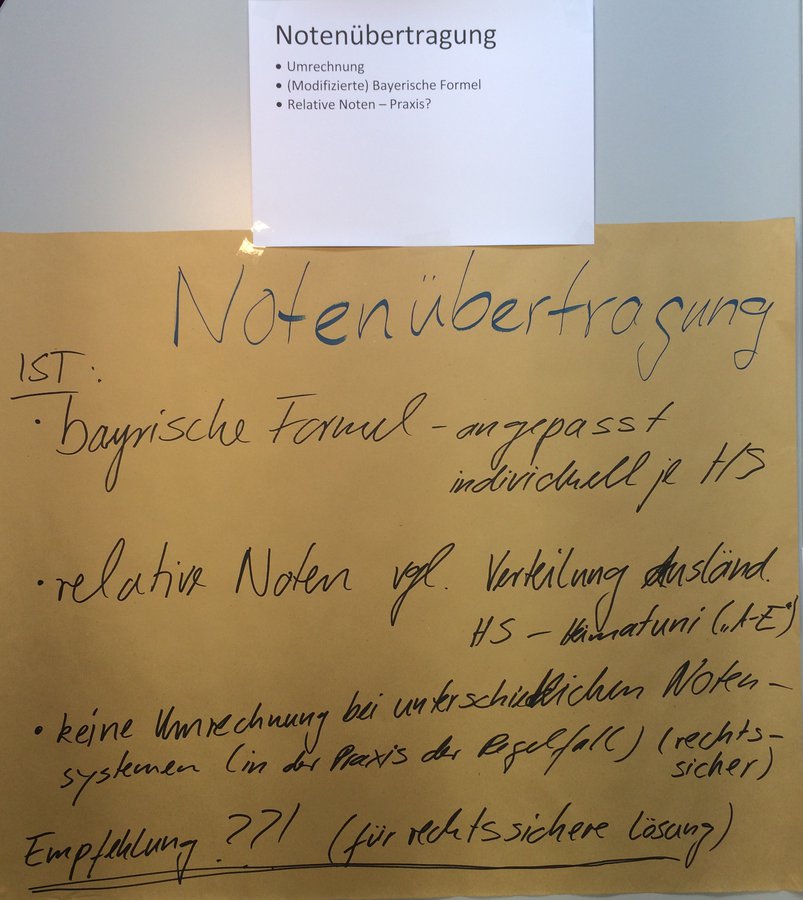 Notenübertragung
• Umrechnung
• (Modifizierte) Bayerische Formel
• Relative Noten – Praxis?
Notenübertragung
IST:
• bayrische Formel - angepasst
individuell je HS
• relative Noten vgl. Verteilung Ausländ.
HS - Heimatuni („A-E")
• keine Umrechnung bei unterschiedlichen Noten-
systemen (in der Praxis der Regelfall) (rechts-
sicher)
Empfehlung ??! (für rechtssichere Lösung)